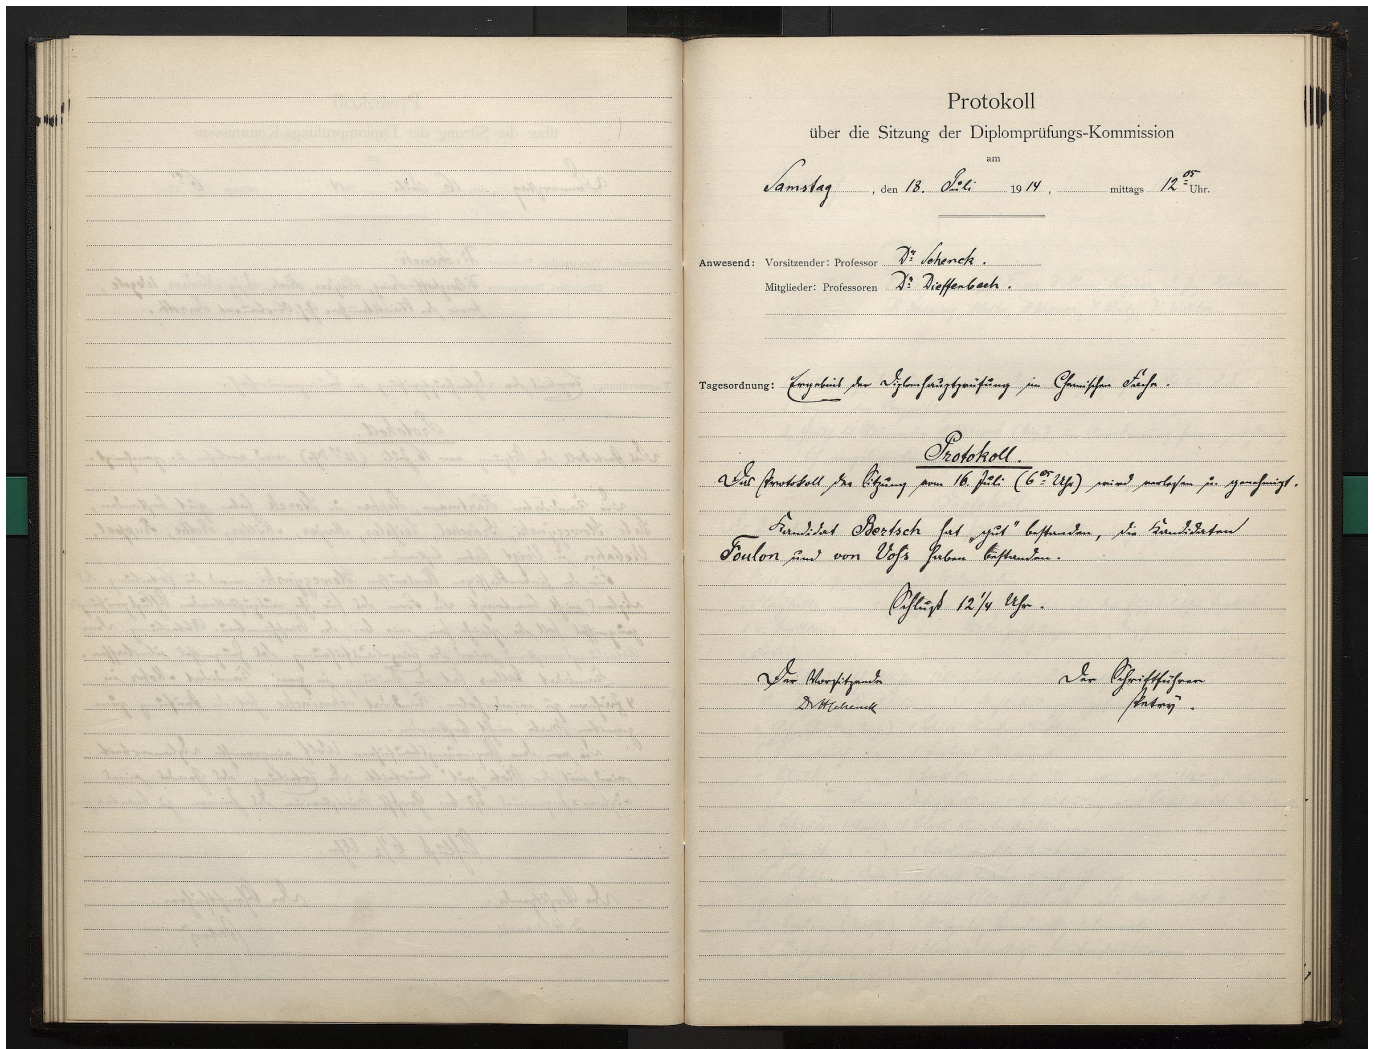 Protokoll
über die Sitzung der Diplomprüfungs-Kommission
am
Samstag, den 18. Juli 1914, mittags 12 05 Uhr.
Anwesend: Vorsitzender: Professor Dr. Schenck.
Mitglieder: Professoren Dr. Dieffenbach.
Tagesordnung: Ergebnis der Diplomhauptprüfung im Chemischen Fache.
Protokoll.
Das Protokoll der Sitzung vom 16. Juli (6 05 Uhr) wird verlesen u. genehmigt.
Kandidat Bertsch hat „gut" bestanden, die Kandidaten
Foulon und von Vohs haben bestanden.
Schluß 12 1/4 Uhr.
Der Vorsitzende Der Schriftführer
Dr. H Schenck Petry.